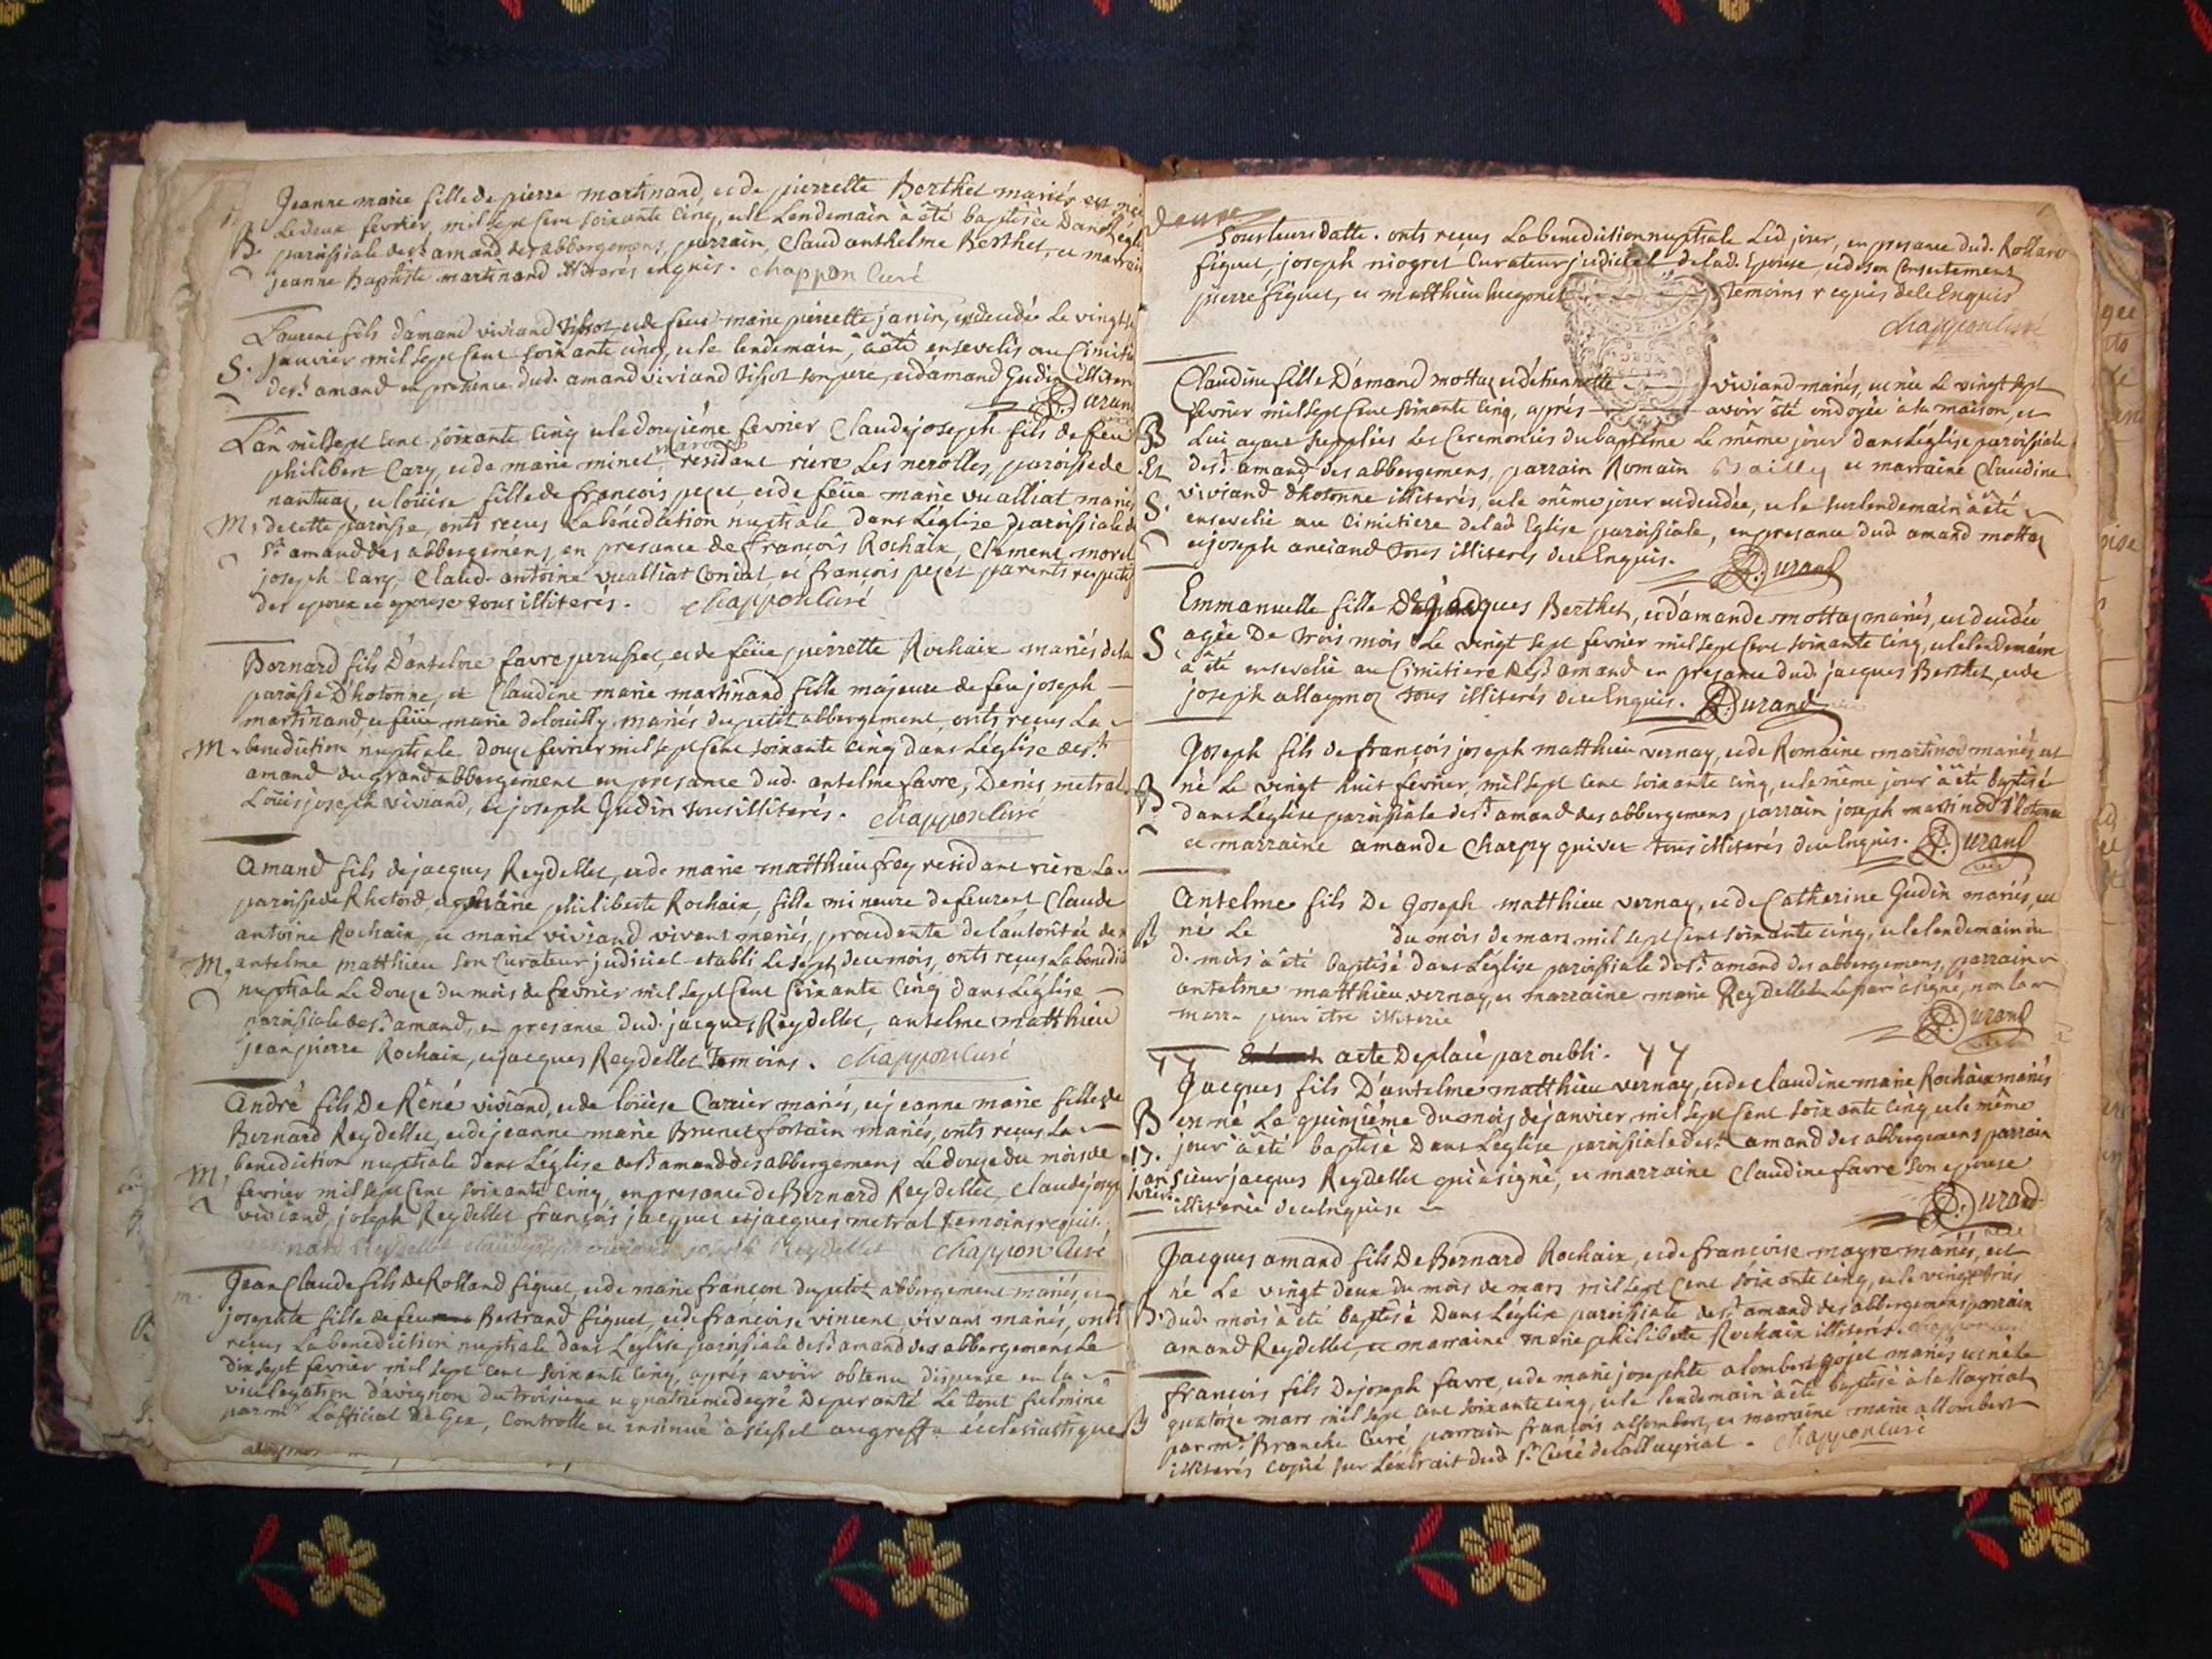 Jeanne marie fille de pierre martinand, et de pierrette Berthet mariés est née
B. Le deux fevrier, mil sept cent soixante cinq, et le Lendemain à été baptisée Dans L'égli
paroissiale de st amand des abbergemens, parrain, Claud anthelme Berthet, et marrain
jeanne Baptiste martinand illiterés enquis. Chappon Curé
Laurent fils d'amand viviand tissot et de feue marie pierrette janin, est decedée Le vingt
S. janvier mil sept cent soixante cinq, et le lendemain, à été ensevelis au Cimiti
de st amand en presence dud. amand viviand tissot son pere, et d'amand Gudin illiter
Durand
L'an mil sept cent soixante cinq et le douziéme fevrier Claude joseph fils de feu
philibert Cary et de marie minet residant riere Les nerolles, paroisse de
nantuaz, et loüise fille de françois pezet et de feüe marie vualliat mariés
M. de cette paroisse, onts recus La bénédiction nuptiale dans L'église paroissiale de
st amand des abbergemens, en presance de françois Rochaix, Clement morel
joseph Cary, Claud. antoine vualliat Conial et françois pezet parents respectif
des epoux et epouse tous illiterés. Chappon Curé
Bernard fils D'antelme favre perusset, et de feüe pierrette Rochaix mariés de la
paroisse D'hotonne, et Claudine marie martinand fille majeure de feu joseph
martinand, et feüe marie delouilly mariés du petit abbergement, onts recus La
M. benediction nuptiale douze fevrier mil sept cent soixante cinq dans L'église de st
amand du grand abbergement en presance dud. antelme favre, Denis metral
Loüis joseph viviand, et joseph Gudin tous illiterés. Chappon Curé
Amand fils de jacques Reydellet, et de marie matthieu frey residant riere La
paroisse de Rhotord, et marie philiberte Rochaix, fille mineure de feurent Claude
antoine Rochaix, et marie viviand vivant mariés, procedente de l'autoritée de
M. antelme matthieu son Curateur judiciel etabli Le sept de ce mois, onts recus La benedict
nuptiale Le douze du mois de fevrier mil sept cent soixante cinq dans L'église
paroissiale de st amand, en presance dud. jacques Reydellet, antelme matthieu
jean pierre Rochaix, et jacques Reydellet temoins. Chappon Curé
André fils De Réné viviand, et de loüise Carrier mariés, et jeanne marie fille de
Bernard Reydellet, et de jeanne marie Brunet fortain mariés, onts recus La
benediction nuptiale dans L'église de st amand des abbergemens Le douze du mois de
M. fevrier mil sept cent soixante cinq, en presance de Bernard Reydellet, Claude joseph
viviand, joseph Reydellet françois jacquet et jacques metral temoins requis.
Chappon Curé
Jean Claude fils De Rolland figuet, et de marie françon du petit abbergement mariés et
josephte fille de feu Bertrand figuet, et de françoise vincent, vivant mariés, onts
reçus La benediction nuptiale dans L'église paroissiale de st amand des abbergemens Le
dix sept fevrier mil sept cent soixante cinq, aprés avoir obtenu dispense en la
vicelegation d'avignon du troisieme et quatrieme degré De parenté Le tout fulminé
par mr L'official De Gex, Controllé et insinué à seissel au greffe ecclesiastique
deux
sous leurs datte. onts reçus La benediction nuptiale Led. jour, en presance dud. Rolland
figuet, joseph niogret Curateur judiciel de lad. Epouse, et de son Consentement
pierre figuet, et matthieu hugonet temoins requis de ce Enquis
Chappon Curé
Claudine fille D'amand mottaz et d'etiennette viviand mariés, est née Le vingt sept
fevrier mil sept cent soixante cinq, aprés avoir été ondoyée à la maison, et
B Lui ayant suppléés Les Ceremonies du baptéme Le même jour dans L'église paroissiale
Et de st amand des abbergemens, parrain Romain Bailly et marraine Claudine
S. viviand d'hotonne illiterés, et le même jour est decedée, et le surlendemain à été
ensevelie au Cimitiere de lad Eglise paroissiale, en presance dud amand mottaz
et joseph anciand tous illiterés de ce Enquis. Durand
Emmanuelle fille De jacques Berthet, et d'amande mottaz mariés, est decedée
S agée De trois mois Le vingt sept fevrier mil sept cent soixante cinq, et le lendemain
à été ensevelie au Cimitiere de st amand en presance dud. jacques Berthet, et de
joseph allaymoz tous illiterés de ce Enquis. Durand
Joseph fils de françois joseph matthieu vernay, et de Romaine martinod mariés, est
B né Le vingt huit fevrier, mil sept cent soixante cinq, et le même jour à été baptisé
dans L'église paroissiale de st amand des abbergemens parrain joseph martinod d'hotonne
et marraine amande Charpy quivet tous illiterés de ce Enquis. Durand
Antelme fils De Joseph matthieu vernay, et de Catherine Gudin mariés, est
B né Le du mois de mars mil sept cent soixante cinq, et le lendemain du
d. mois à été baptisé dans L'église paroissiale de st amand des abbergemens, parrain
antelme matthieu vernay, et marraine marie Reydellet le par à signé, non la
marr. pour être illiterée
Durand
acte Deplacé par oubli.
Jacques fils D'antelme matthieu vernay, et de claudine marie Rochaix mariés
B est né Le quinziéme du mois de janvier mil sept cent soixante cinq, et le même
15. jour à été baptisé Dans L'église paroissiale de st amand des abbergemens parrain
jan sieur jacques Reydellet qui à signé, et marraine Claudine favre son epouse
vier. illiterée de ce Enquise
Durand
Jacques amand fils De Bernard Rochaix, et de francoise mayre mariés, est
né Le vingt deux du mois de mars mil sept cent soixante cinq, et le vingt trois
B. dud. mois à été baptisé Dans L'église paroissiale de st amand des abbergemens parrain
amand Reydellet, et marraine marie philiberte Rochaix illiterés. Chappon Curé
françois fils De joseph favre, et de marie josephte alombert gojet mariés est né le
quatorze mars mil sept cent soixante cinq, et le lendemain à été baptisé à lalleyriat
B par mr. Branche Curé parrain françois allombert, et marraine marie allombert
illiterés copié sur L'extrait dud sr. Curé de lalleyriat. Chappon Curé